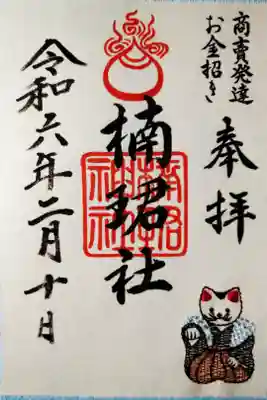 商賣発達
お金招き
奉拝
楠珺社
令和六年二月十日